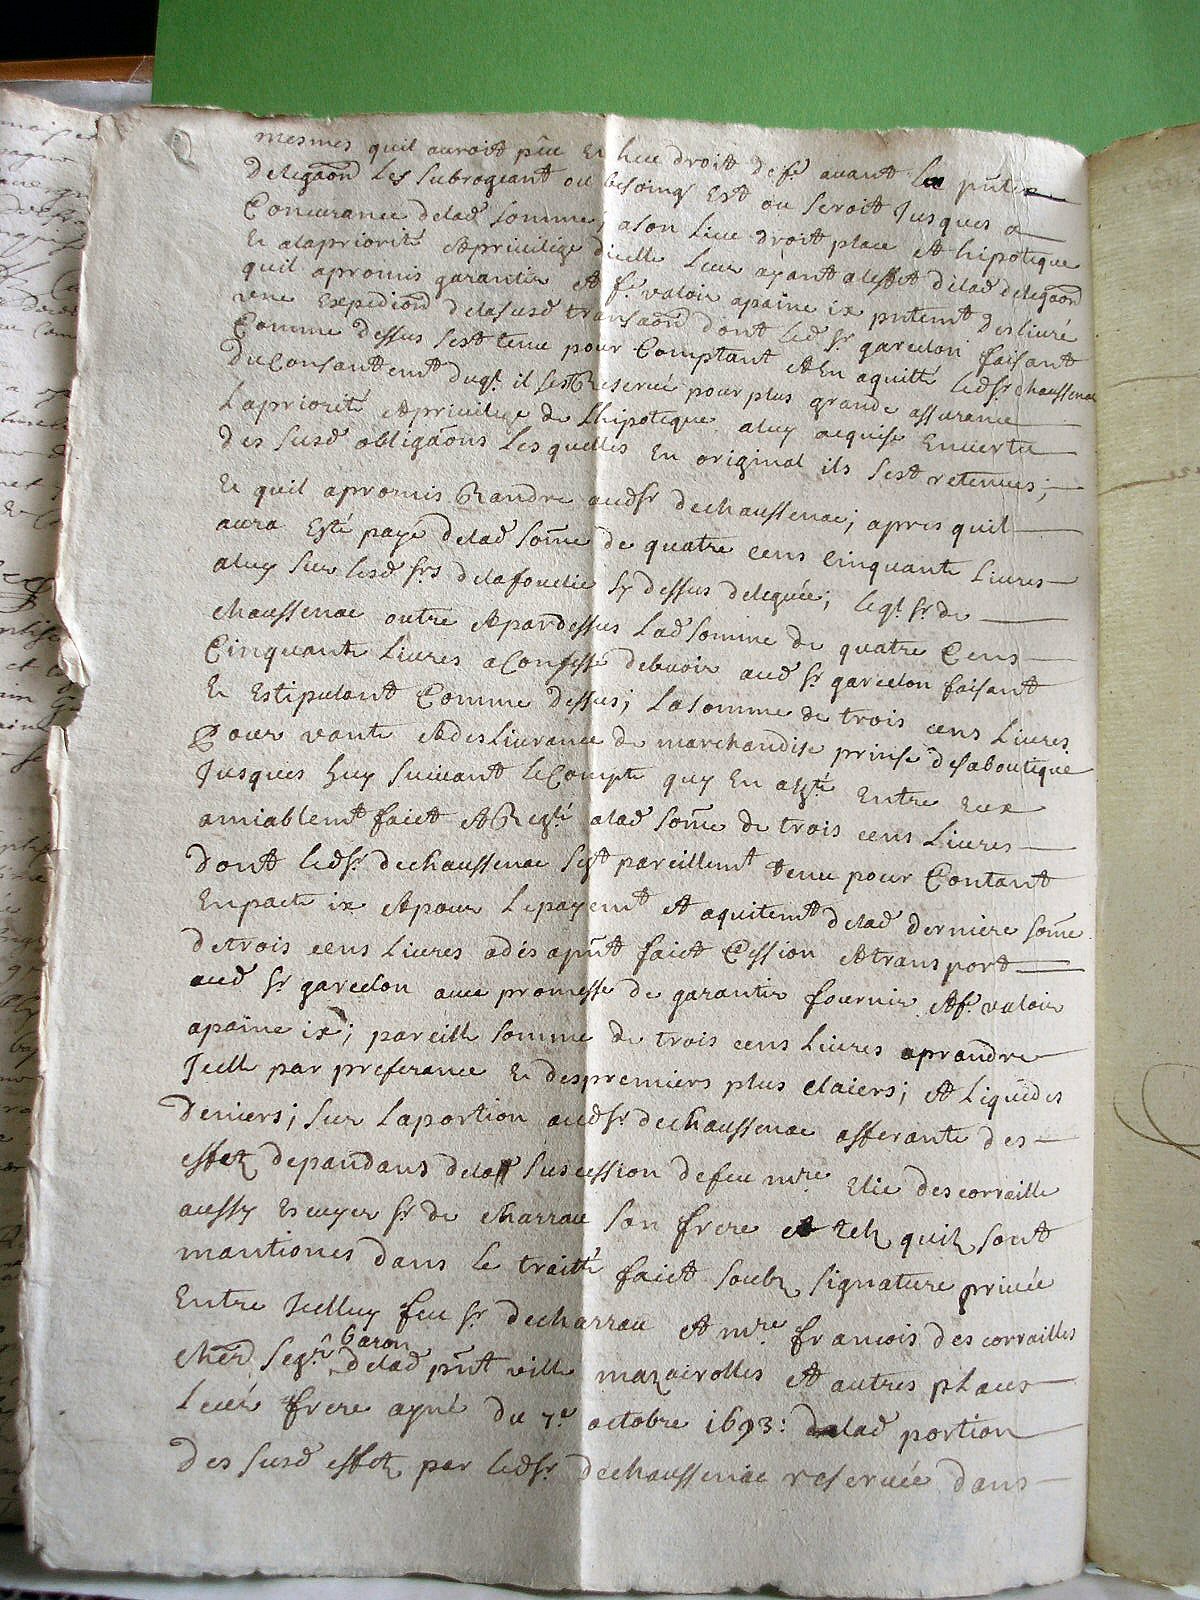 mesmes quil auroit pûu Et heu droit de fe avant la pnte
delegaon Les subrogeant ou besoing Est ou seroit Jusques a
Concurance delad somme, a son Lieu droit place et hipoteque
Et alapriorité et privilege dicelle Leur ayant aleffet delad delegaon
quil apromis garantir et fe valoir apaine ix pntemt deslivré
une expedion delasusd transaon dont led sr garcelon faisant
Comme dessus sest tenu pour Comptant et En aquitté ledsr chaussenac
Du Consantemt dugl il sest Reservé pour plus grande assurance
Lapriorité et privilege de Lhipoteque aluy acquise Envertu
des susd obligaons Lesquelles En original ils sest retenues;
Et quil apromis Randre audsr dechaussenac; apres quil
aura Esté payé delad some de quatre cens cinquante Livres
aluy sur lesd srs delafouelie sy dessus deleguée; leql sr de
chaussenac outre et pardessus Lad somme de quatre Cens
Cinquante Livres aConfessé debvoir aud sr garcelon faisant
Et Estipulant Comme dessus; Lasomme de trois cens Livres
Pour vante et deslivrance de marchandise prinse desaboutique
Jusques huy suivant le Compte quy En a esté Entre eux
amiablemt faict et Reglé alad some de trois cens Livres
dont ledsr dechaussenac sest pareillemt tenu pour Contant
Enpacte ix et pour Lepayemt et aquitemt delad derniere some
detrois cens Livres adés apnt faict Cession et transport
aud sr garcelon avec promesse de garantir fournir et fe valoir
apaine ix; pareille somme de trois cens Livres aprandre
Icelle par preferance Et despremiers plus claiers; et Liquides
deniers; sur Laportion audsr dechaussenac afferante des
effetz depandans delad sucession defeu mre Elie descorraille
aussy Escuyer sr de charrau son frere et telz quilz sont
mantionés dans le traitté faict soubz signature privée
Entre Icelluy feu sr decharrau et mre francois descorrailles
cher segr Baron delad pnt ville mazairolles et autres places
Leur frere ayné du 7e octobre 1693: delad portion
des susd effetz par ledsr dechaussenac reservée dans